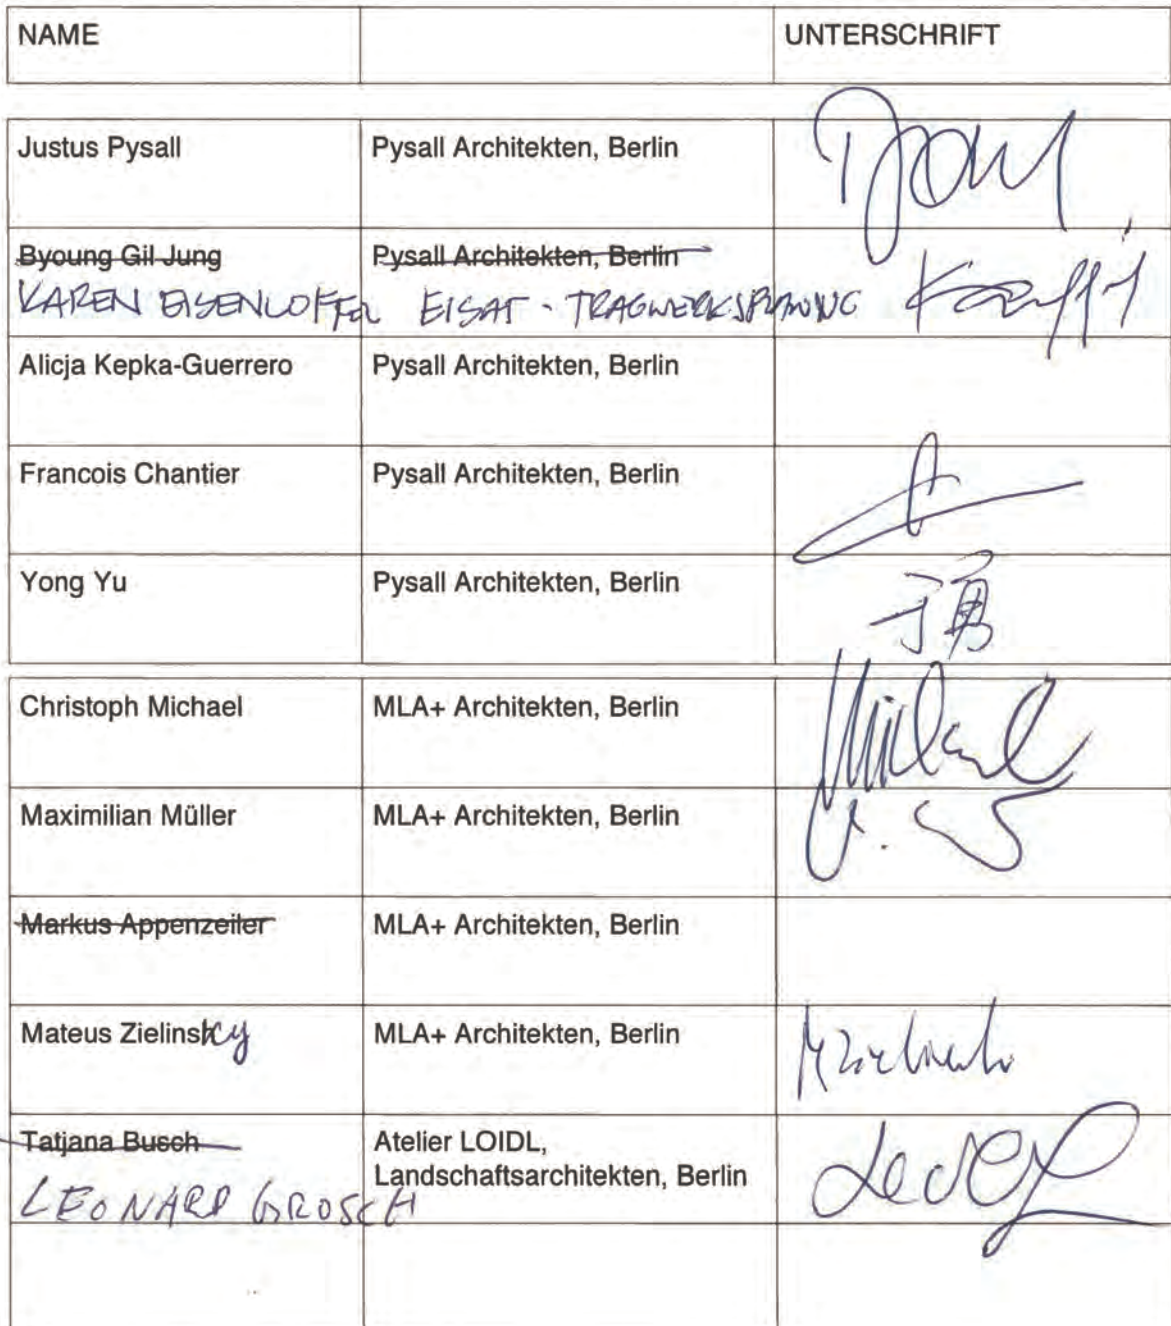 NAME UNTERSCHRIFT
Justus Pysall Pysall Architekten, Berlin
Byoung Gil Jung Pysall Architekten, Berlin
KAREN EISENLOFFEL EISAT - TRAGWERKSPLANUNG
Alicja Kepka-Guerrero Pysall Architekten, Berlin
Francois Chantier Pysall Architekten, Berlin
Yong Yu Pysall Architekten, Berlin
于勇
Christoph Michael MLA+ Architekten, Berlin
Michael
Maximilian Müller MLA+ Architekten, Berlin
Markus Appenzeller MLA+ Architekten, Berlin
Mateus Zielinsky MLA+ Architekten, Berlin
Tatjana Busch Atelier LOIDL,
Landschaftsarchitekten, Berlin
LEONARD GROSCH